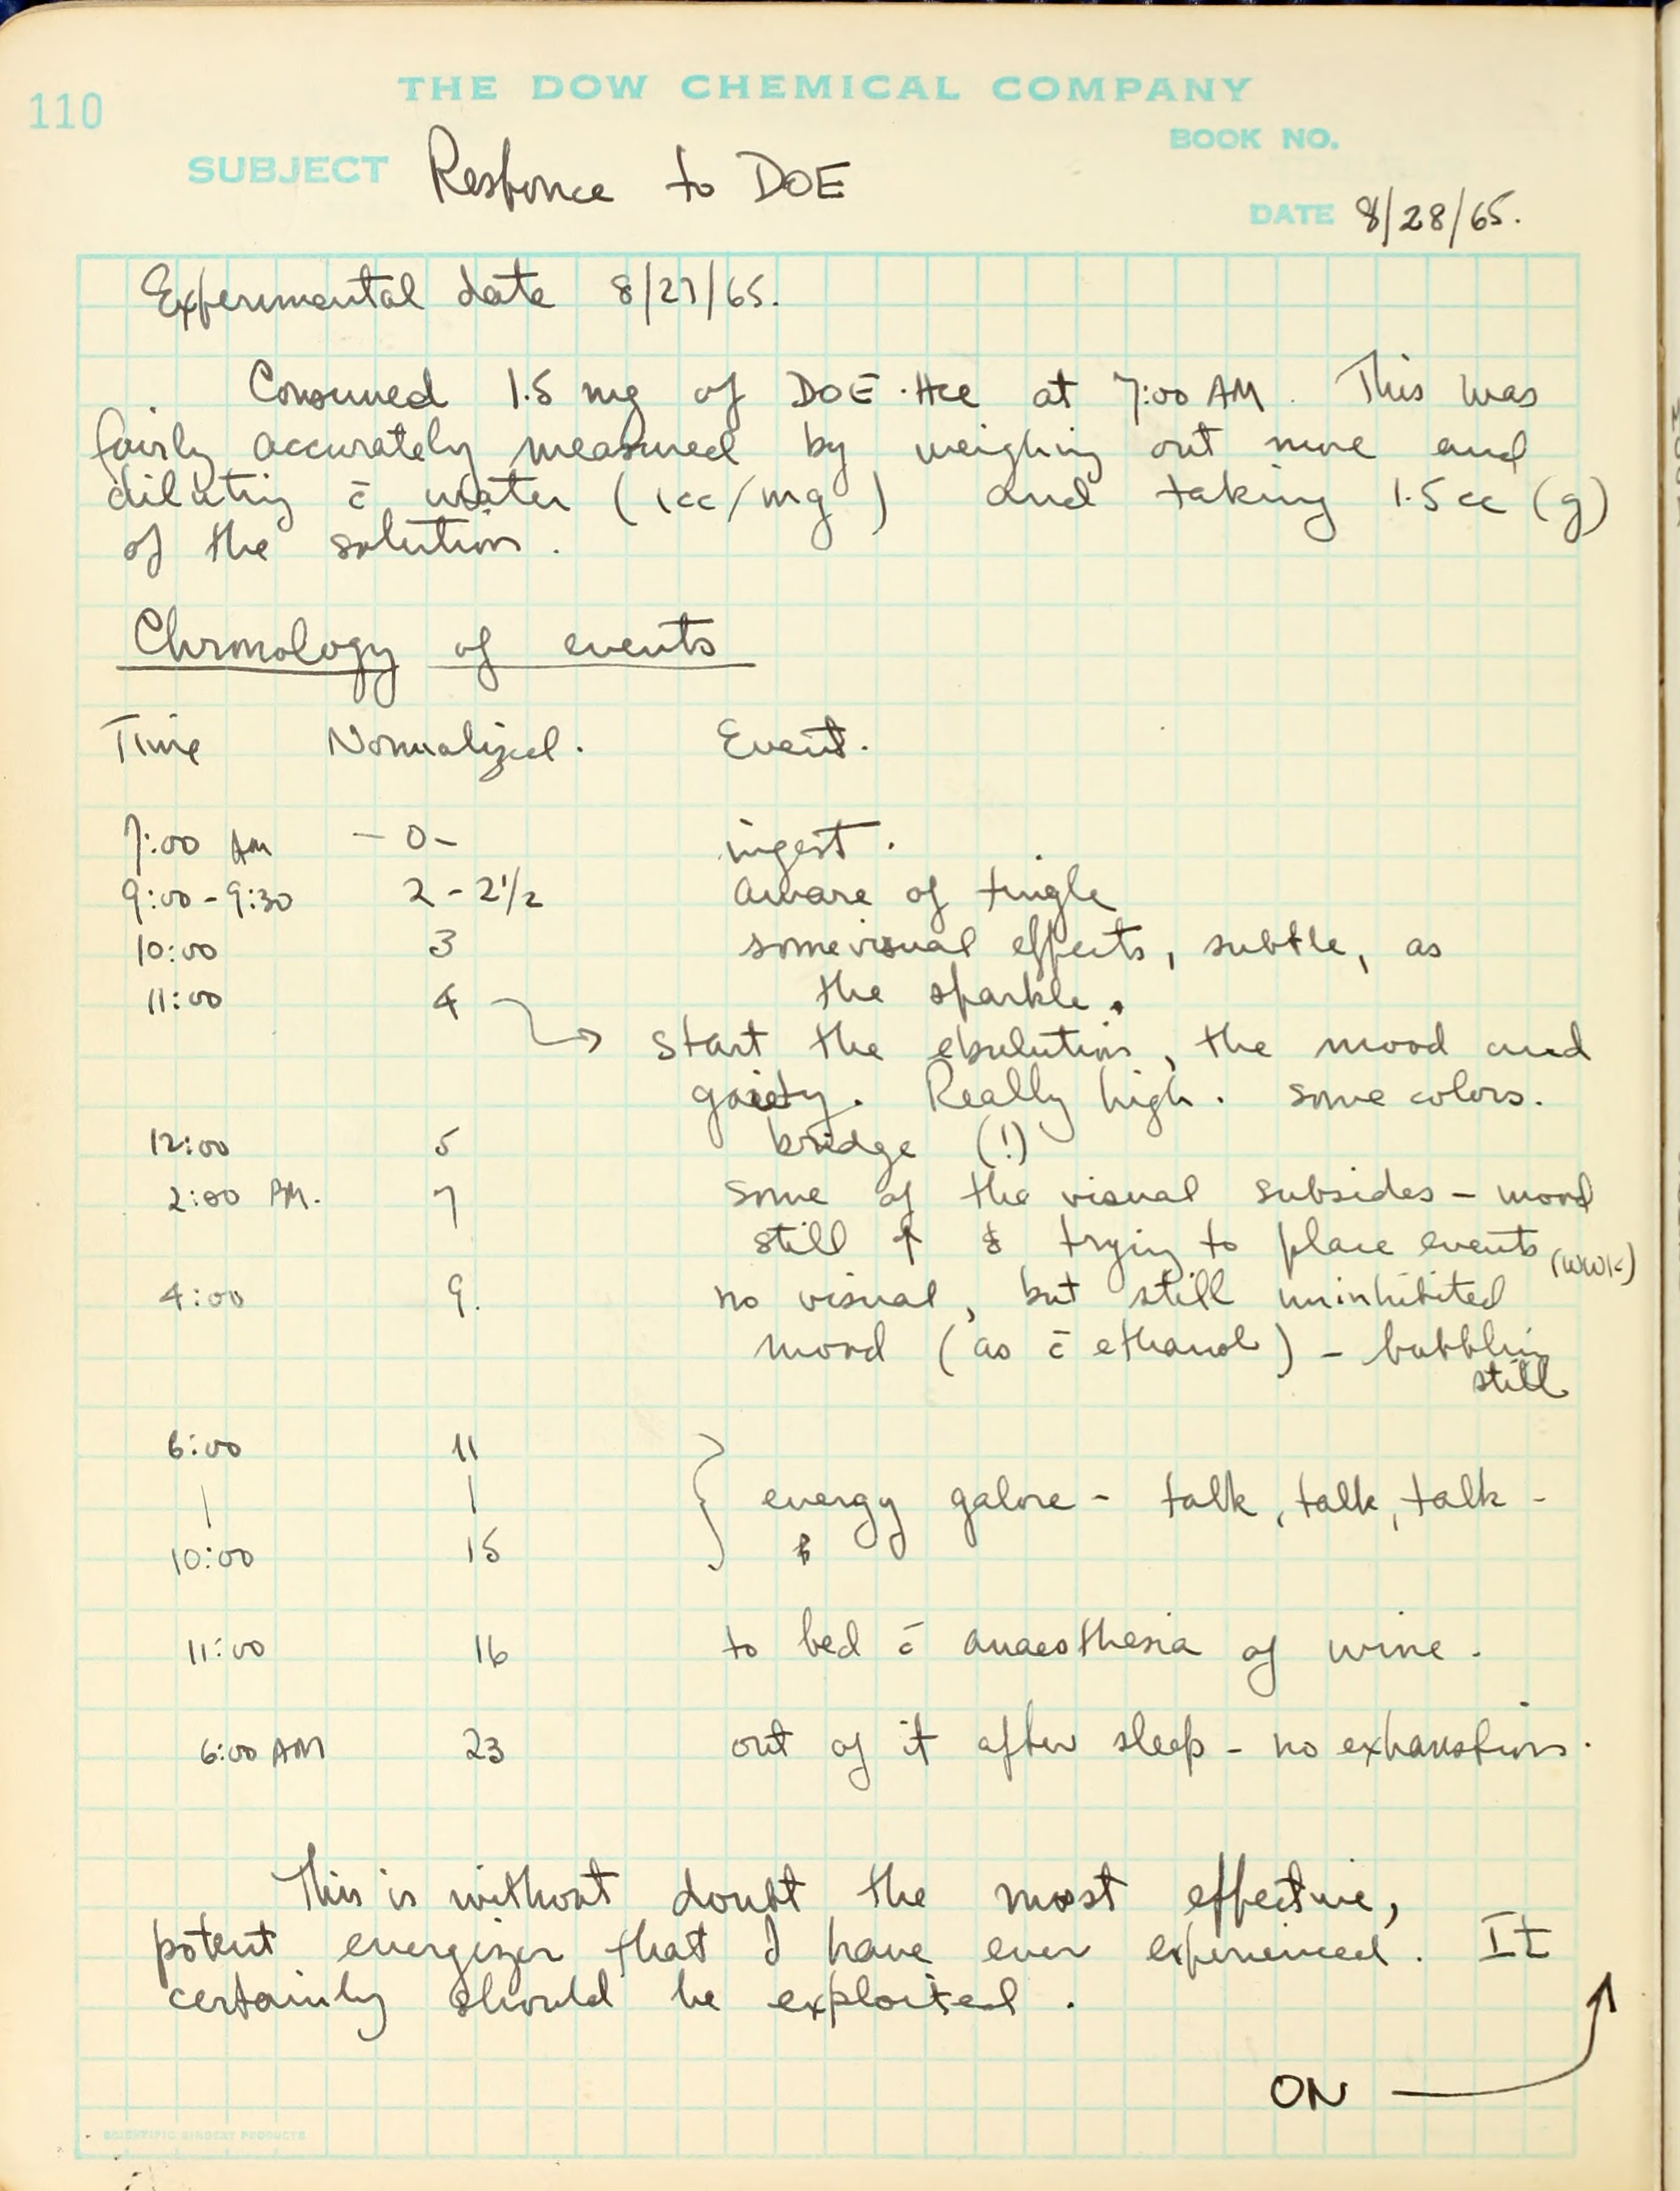 110
THE DOW CHEMICAL COMPANY
BOOK NO.
SUBJECT Responce to DOE
DATE 8/28/65.
Experimental date 8/27/65.
Consumed 1.5 mg of DOE·HCl at 7:00 AM. This was
fairly accurately measured by weighing out more and
diluting c̄ water (1cc/mg) and taking 1.5cc (g)
of the solution.
Chronology of events
Time Normalized. Event.
7:00 AM -0- ingest.
9:00-9:30 2-2 1/2 aware of tingle
10:00 3 some visual effects, subtle, as
11:00 4 the sparkle.
→ start the ebulution, the mood and
gaiety. Really high. some colors.
12:00 5 bridge (!)
2:00 PM. 7 some of the visual subsides - mood
still ↑ & trying to place events (WWK)
4:00 9. no visual, but still uninhibited
mood (as c̄ ethanol) - bubblin
still
6:00 11
| | } energy galore - talk, talk, talk -
10:00 15
11:00 16 to bed c̄ anaesthesia of wine.
6:00 AM 23 out of it after sleep - no exhaustion.
This is without doubt the most effective,
potent energizer that I have ever experienced. It
certainly should be exploited.
ON →
SCIENTIFIC BINDERY PRODUCTS